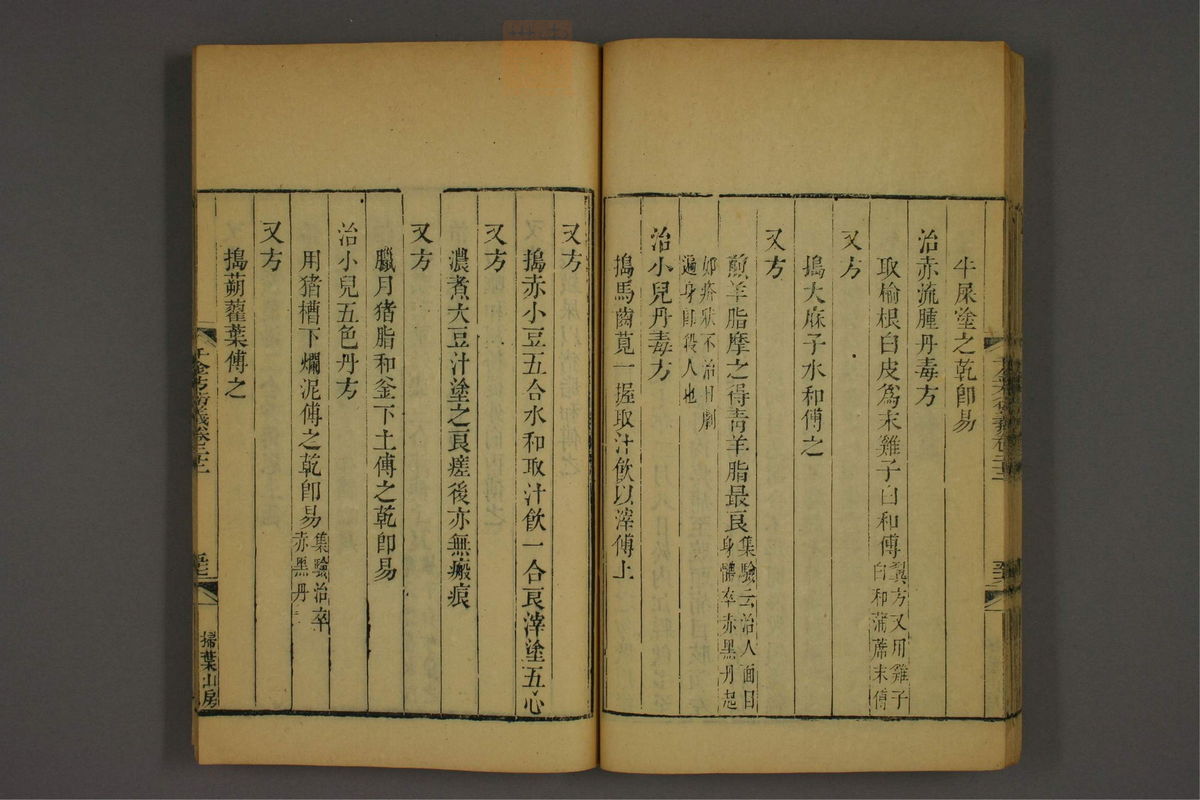 牛屎塗之乾即易
治赤流腫丹毒方
取榆根白皮爲末雞子白和傅翼方又用雞子白和蒲蓆末傅
又方
搗大麻子水和傅之
又方
煎羊脂摩之得青羊脂最良集驗云治人面目身體卒赤黑丹起
如疥狀不治日劇遍身即殺人也
治小兒丹毒方
搗馬齒莧一握取汁飲以滓傅上
又方
搗赤小豆五合水和取汁飲一合良滓塗五心
又方
濃煮大豆汁塗之良瘥後亦無瘢痕
又方
臘月猪脂和釜下土傅之乾即易
治小兒五色丹方
用猪槽下爛泥傅之乾即易集驗治卒赤黑丹
又方
搗蒴藋葉傅之
千金方衍義卷二十二
掃葉山房